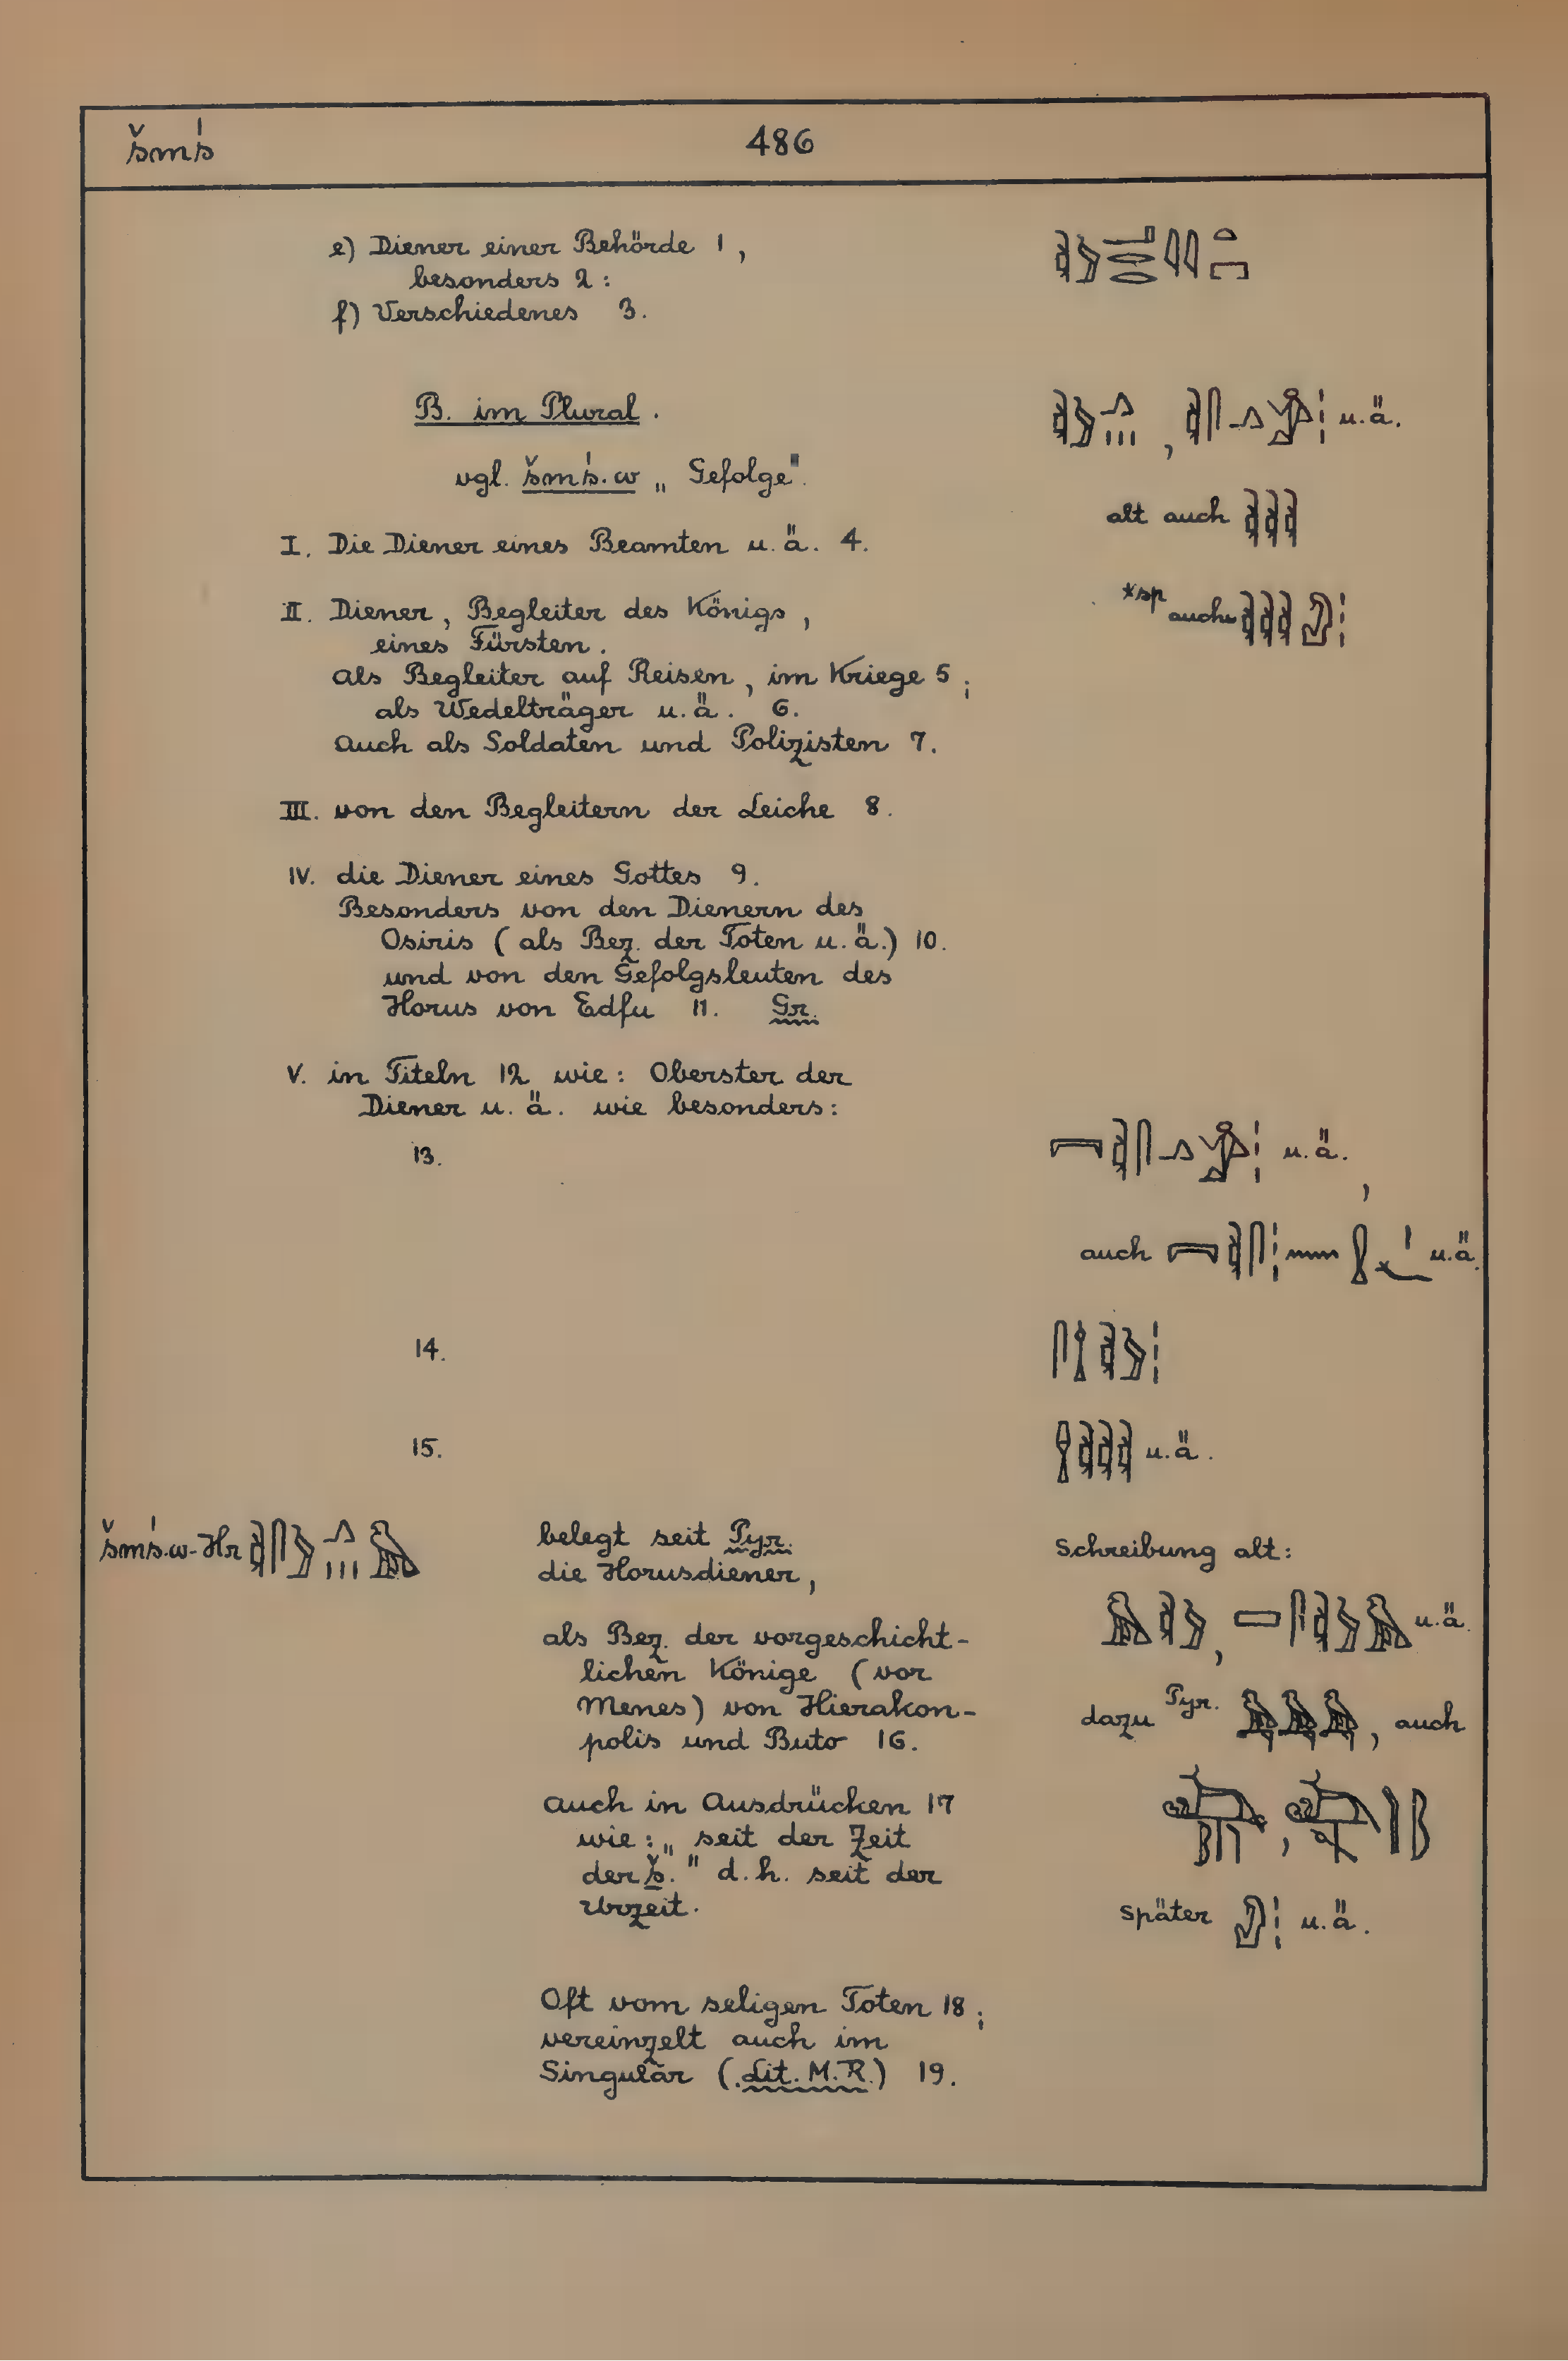 šmś 486
e) Diener einer Behörde 1,
besonders 2:
f) Verschiedenes 3.
B. im Plural.
u.ä.
vgl. šmś.w „Gefolge".
alt auch
I. Die Diener eines Beamten u.ä. 4.
II. Diener, Begleiter des Königs,
*sp auch
eines Fürsten.
als Begleiter auf Reisen, im Kriege 5;
als Wedelträger u.ä. 6.
Auch als Soldaten und Polizisten 7.
III. von den Begleitern der Leiche 8.
IV. die Diener eines Gottes 9.
Besonders von den Dienern des
Osiris (als Bez. der Toten u.ä.) 10.
und von den Gefolgsleuten des
Horus von Edfu 11. Gr.
V. in Titeln 12 wie: Oberster der
Diener u.ä. wie besonders:
13. u.ä.,
auch u.ä.
14.
15. u.ä.
šmś.w-Ḥr
belegt seit Pyr.
die Horusdiener,
als Bez. der vorgeschicht-
lichen Könige (vor
Menes) von Hierakon-
polis und Buto 16.
auch in Ausdrücken 17
wie: „seit der Zeit
der š." d.h. seit der
Urzeit.
Oft vom seligen Toten 18;
vereinzelt auch im
Singular (Lit. M.R.) 19.
Schreibung alt:
u.ä.
dazu Pyr. , auch
später u.ä.